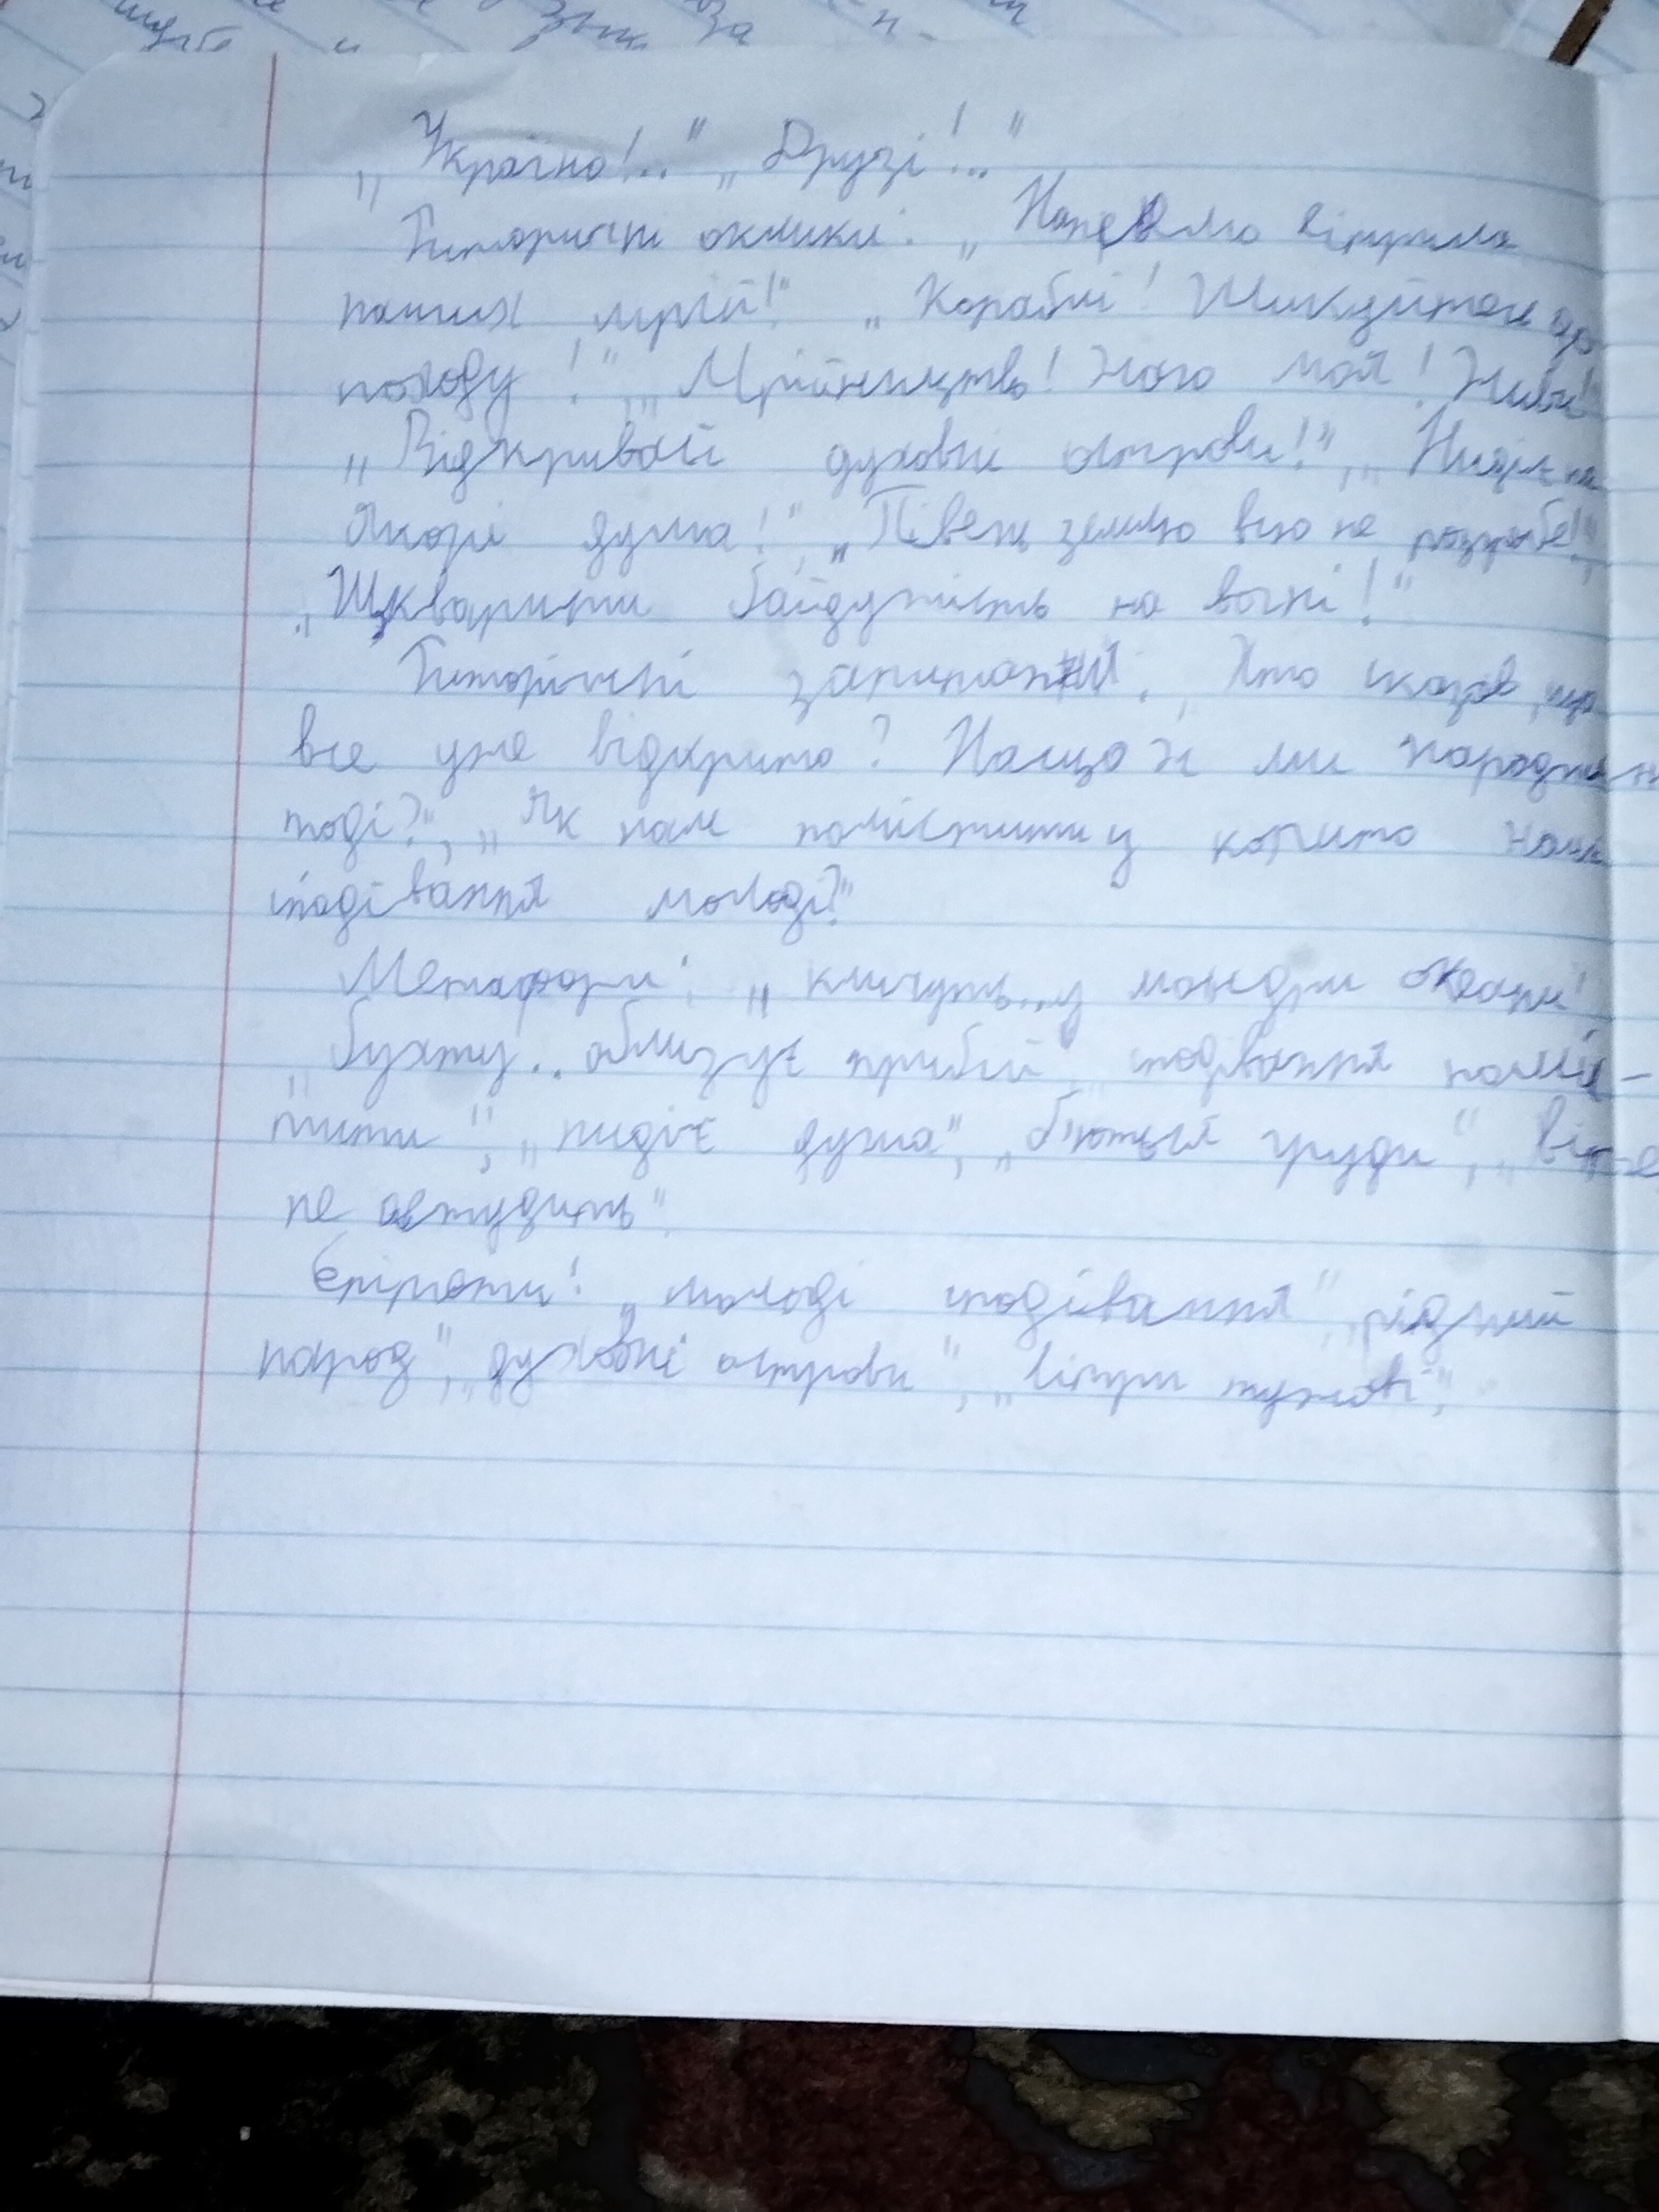 „Україно!.." „Друзі!.."
Риторичні оклики: „Напнемо вітрила
наших мрій!" „Кораблі! Шикуйтесь до
походу!", „Мрійництво! Жаго моя! Живи!"
„Відкривай духовні острови!", „Нидіє на
якорі душа!", „Півень землю всю не розгребе!",
„Шкварити байдужість на вогні!"
Риторічні запитання: „Хто сказав, що
все уже відкрито? Нащо ж ми народжен
тоді?", „Як нам помістити у корито наши
сподівання молоді?"
Метафори: „кличуть...у мандри океани"
„бухту.. облизує прибій", „сподівання поміс-
тити", „нидіє душа", „б'ються груди",
не остудить".
Епітети: „молоді сподівання", „рідний
народ", „духовні острови", „вітри тужаві",